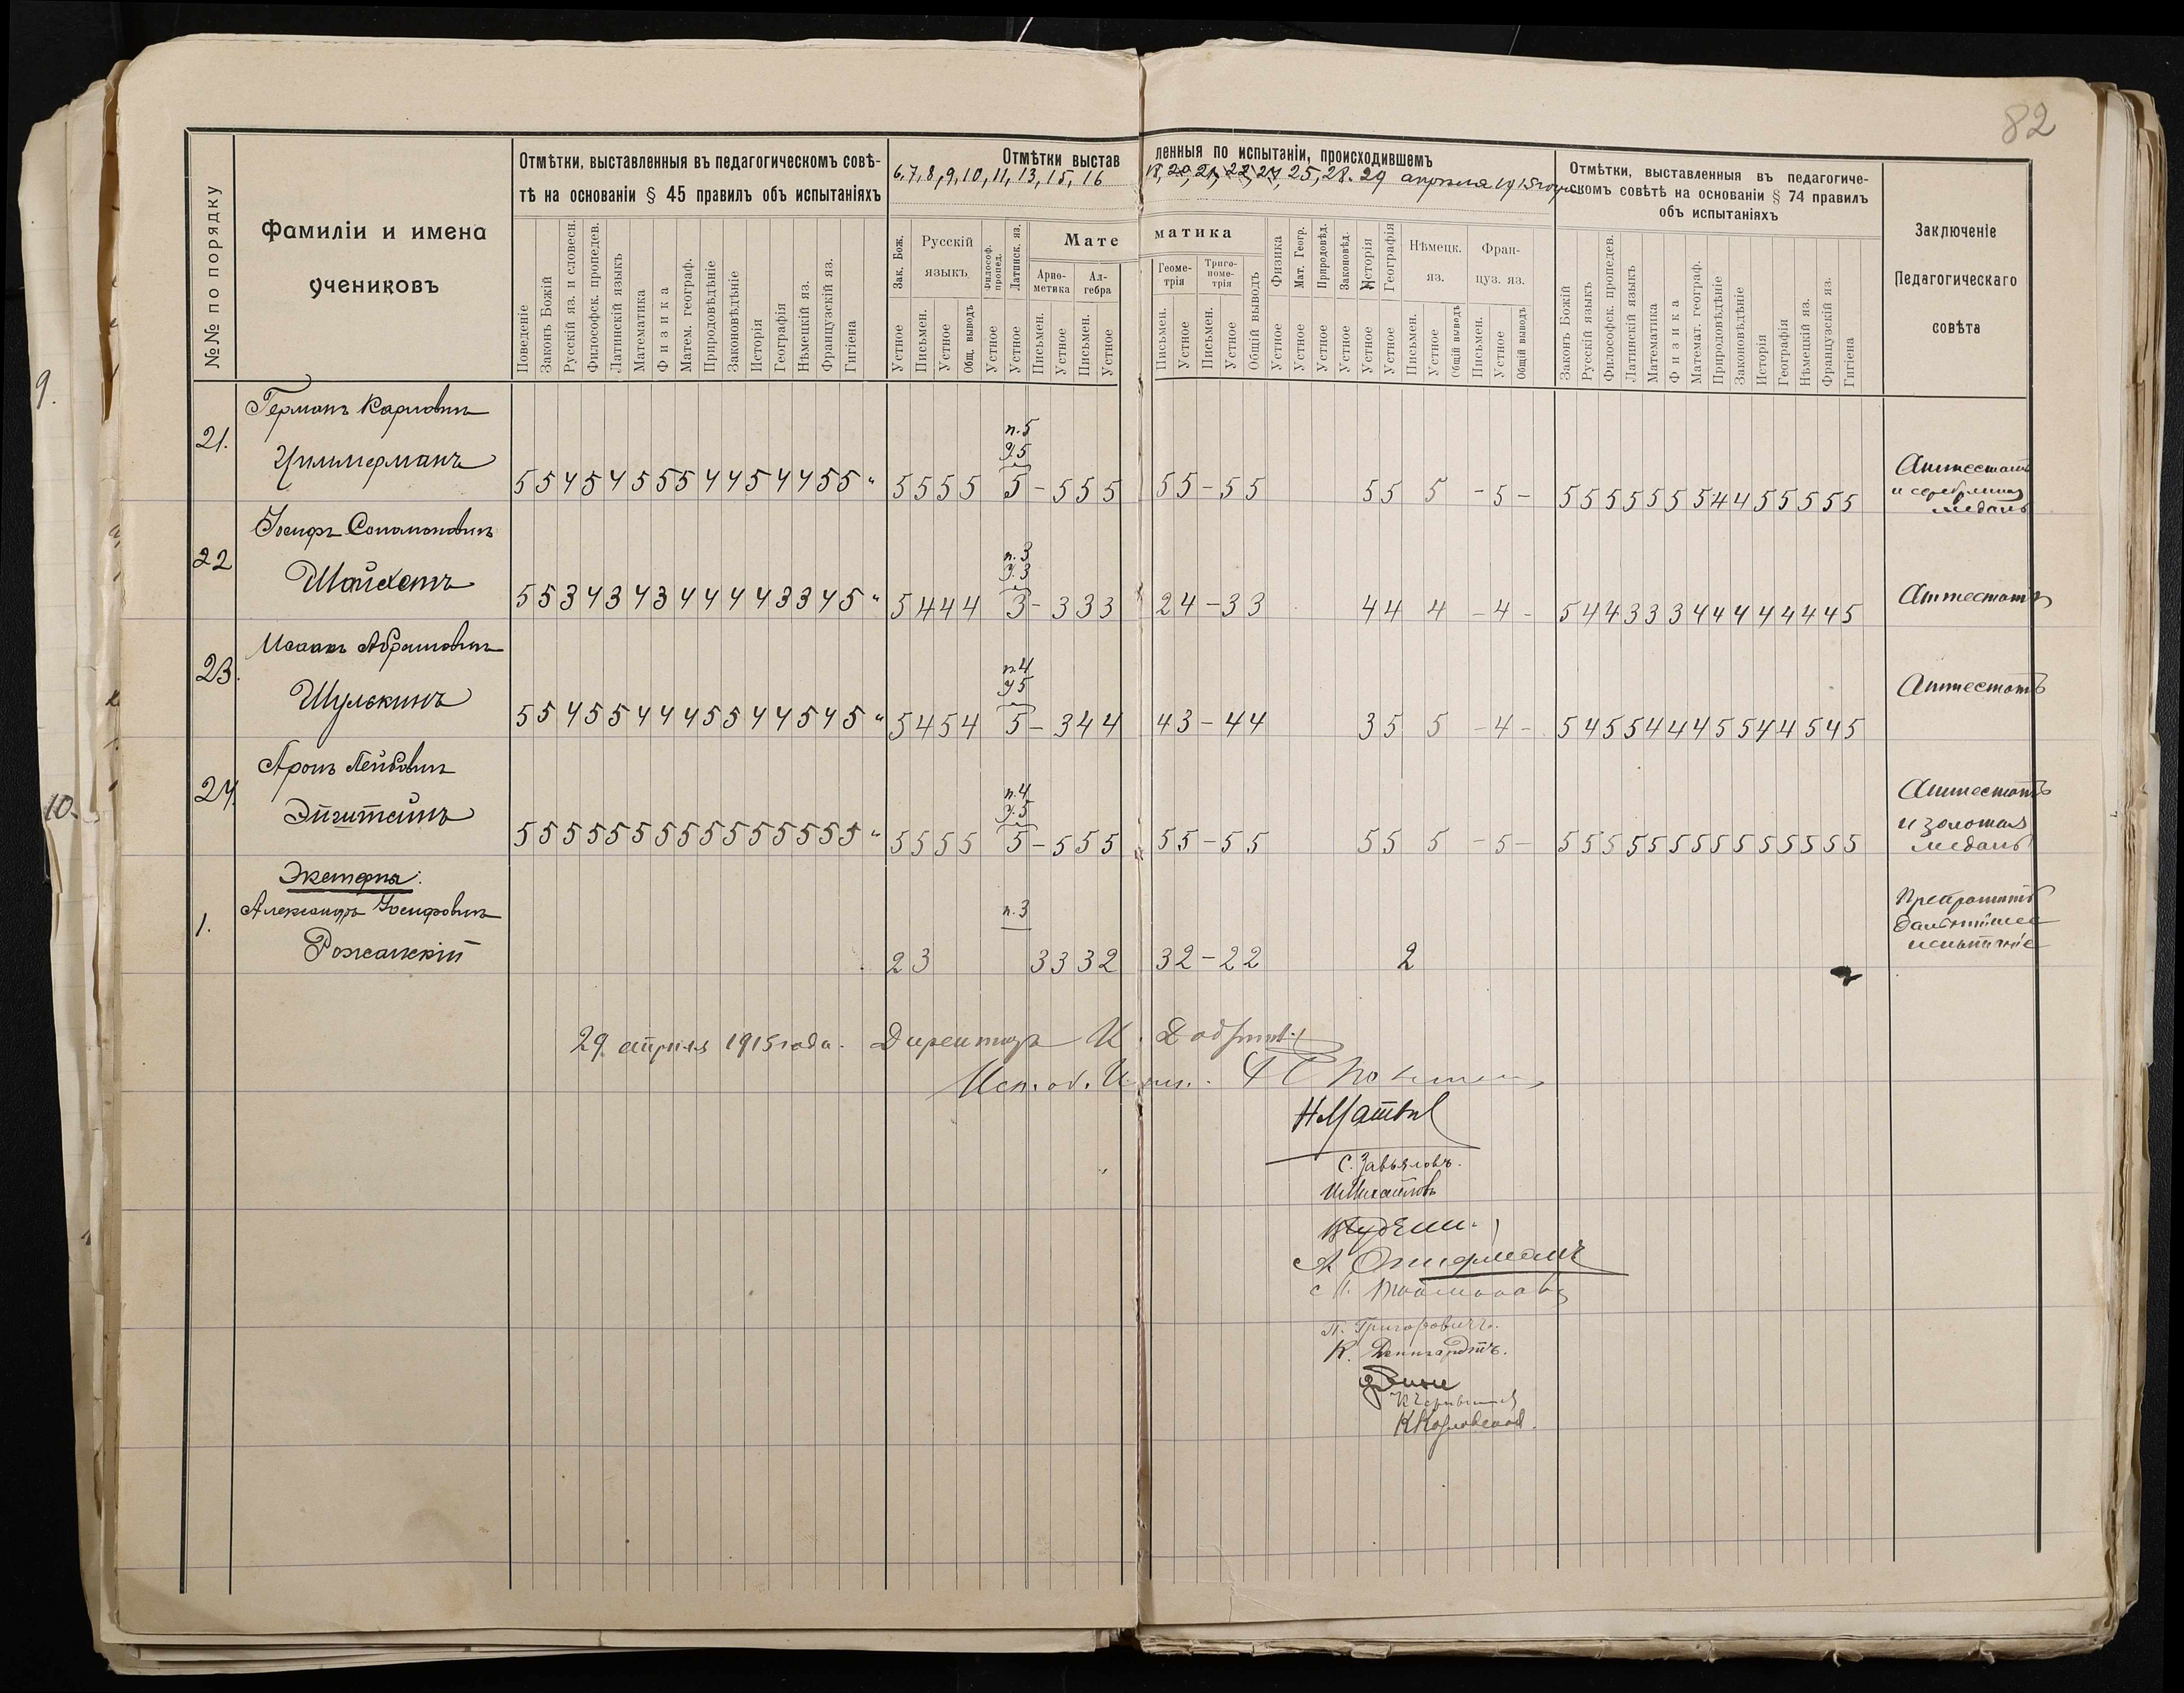 82
9.
10.
№№ по порядку
Фамиліи и имена
учениковъ
Отмѣтки, выставленныя въ педагогическомъ совѣ-
тѣ на основаніи § 45 правилъ объ испытаніяхъ
Поведеніе
Законъ Божій
Русскій яз. и словесн.
Философск. пропедев.
Латинскій языкъ
Математика
Физика
Матем. географ.
Природовѣдѣніе
Законовѣдѣніе
Исторія
Географія
Нѣмецкій яз.
Французскій яз.
Гигіена
Отмѣтки выставленныя по испытаніи, происходившемъ
6, 7, 8, 9, 10, 11, 13, 15, 16 18, 20, 21, 22, 24, 25, 28. 29 апрѣля 1915 года
Зак. Бож.
Русскій
языкъ
Философ. пропед.
Латинск. яз.
Математика
Ариѳ-
метика
Ал-
гебра
Геоме-
трія
Триго-
номе-
трія
Физика
Мат. Геогр.
Природовѣд.
Законовѣд.
Исторія
Географія
Нѣмецк.
яз.
Фран-
цуз. яз.
Устное
Письмен.
Устное
Общ. выводъ
Устное
Устное
Письмен.
Устное
Письмен.
Устное
Письмен.
Устное
Письмен.
Устное
Общій выводъ
Устное
Устное
Устное
Устное
Устное
Устное
Письмен.
Устное
Общій выводъ
Письмен.
Устное
Общій выводъ
Отмѣтки, выставленныя въ педагогиче-
скомъ совѣтѣ на основаніи § 74 правилъ
объ испытаніяхъ
Законъ Божій
Русскій языкъ
Философск. пропедев.
Латинскій языкъ
Математика
Физика
Математ. географ.
Природовѣдѣніе
Законовѣдѣніе
Исторія
Географія
Нѣмецкій яз.
Французскій яз.
Гигіена
Заключеніе
Педагогическаго
совѣта
Германъ Карловичъ
21.
Циммерманъ
п. 5
У. 5
5 5 4 5 4 5 5 5 4 4 5 4 4 5 5 " 5 5 5 5 5 - 5 5 5 5 5 - 5 5 5 5 5 - 5 - 5 5 5 5 5 5 5 4 4 5 5 5 5 5
Аттестатъ
и серебряная
медаль
Іосифъ Соломоновичъ
22
Шайхетъ
п. 3
У. 3
5 5 3 4 3 4 3 4 4 4 4 3 3 4 5 " 5 4 4 4 3 - 3 3 3 2 4 - 3 3 4 4 4 - 4 - 5 4 4 3 3 3 4 4 4 4 4 4 4 5
Аттестатъ
Исаакъ Абрамовичъ
23.
Шулькинъ
п. 4
У 5
5 5 4 5 5 4 4 4 5 5 4 4 5 4 5 " 5 4 5 4 5 - 3 4 4 4 3 - 4 4 3 5 5 - 4 - 5 4 5 5 4 4 4 5 5 4 4 5 4 5
Аттестатъ
Аронъ Лейбовичъ
24.
Эпштейнъ
п. 4
У. 5
5 5 5 5 5 5 5 5 5 5 5 5 5 5 5 " 5 5 5 5 5 - 5 5 5 5 5 - 5 5 5 5 5 - 5 - 5 5 5 5 5 5 5 5 5 5 5 5 5 5
Аттестатъ
и золотая
медаль
Экстерны:
1.
Александръ Іосифовичъ
Рожанскій
п. 3
2 3 3 3 3 2 3 2 - 2 2 2
Прекратить
дальнѣйшее
испытаніе
29 апрѣля 1915 года. Директоръ И.
Исп. об. Инсп.
Н Матвѣ
С. Завьяловъ.
И Михайловъ
П. Григоровичъ.
К.
К Козловскій.